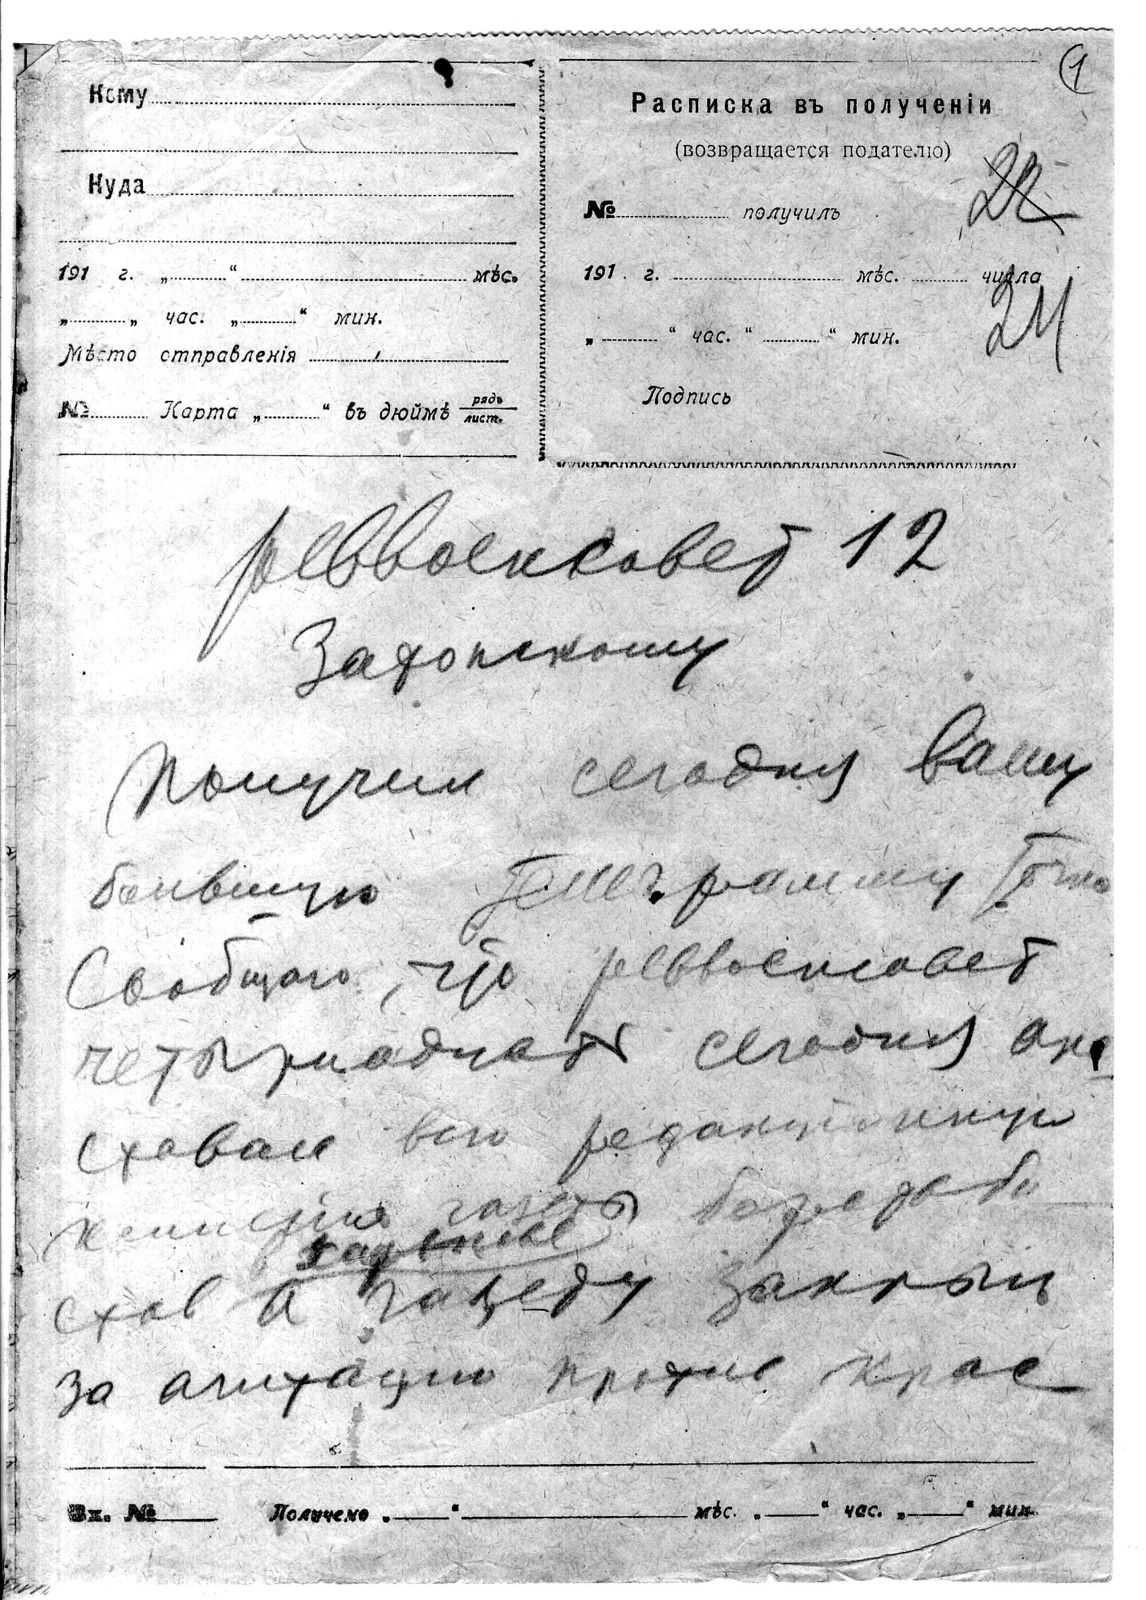 1
Кому
Куда
191 г. „ “ мѣс.
„ „ час. „ “ мин.
Мѣсто отправленія
№ Карта „ “ въ дюймѣ рядъ листъ.
Расписка въ полученіи
(возвращается подателю)
№ получилъ
22
191 г. мѣс. числа
24
„ “ час. “ “ мин.
Подпись
реввоенсовет 12
Затонскому
Получил сегодня вашу
телеграмму точка
Сообщаю, что реввоенсовет
четырнадцать сегодня аре
стовал всю редакционную
газеты
харьков
стов а газету закрыл
за агитацию против Крас
Вх. № Получено „ “ мѣс. „ “ час. „ “ мин.